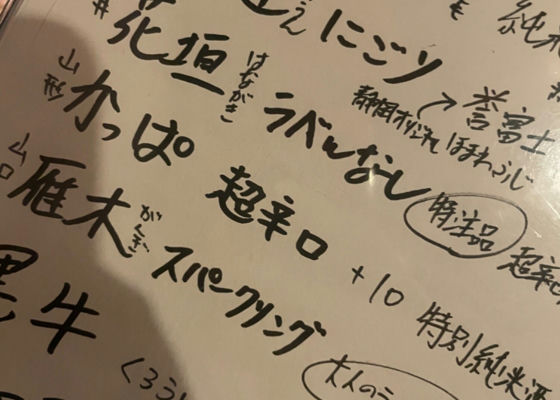 花垣 はながき にごり 純米
静岡オリジナル 誉富士 ほまれふじ
山形 かっぱ ラベルなし 特注品
山口 雁木 がんぎ 超辛口 +10 特別純米酒
黒牛 くろうし スパークリング 大人の
超辛口